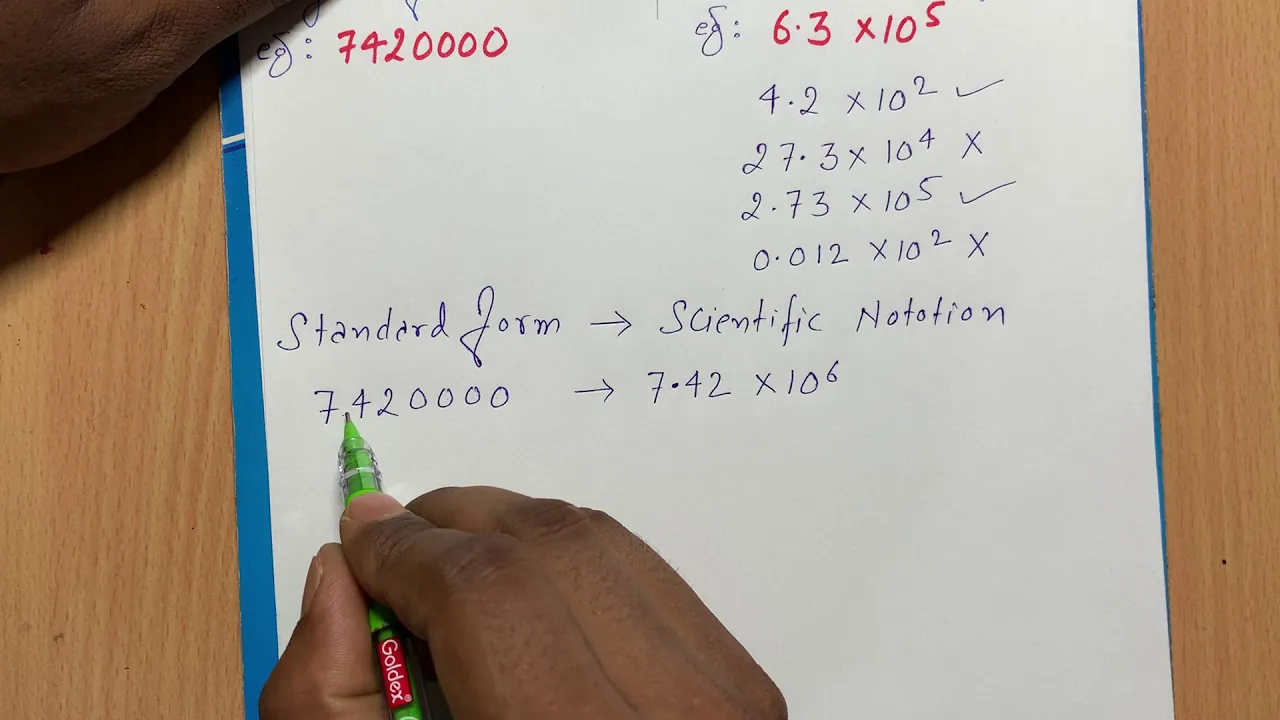 eg: 7420000
eg: 6.3 ×10⁵
4.2 ×10² ✓
27.3× 10⁴ ×
2.73 ×10⁵ ✓
0.012 ×10² ×
Standard form → Scientific Nototion
7420000 → 7.42 ×10⁶
Goldex®